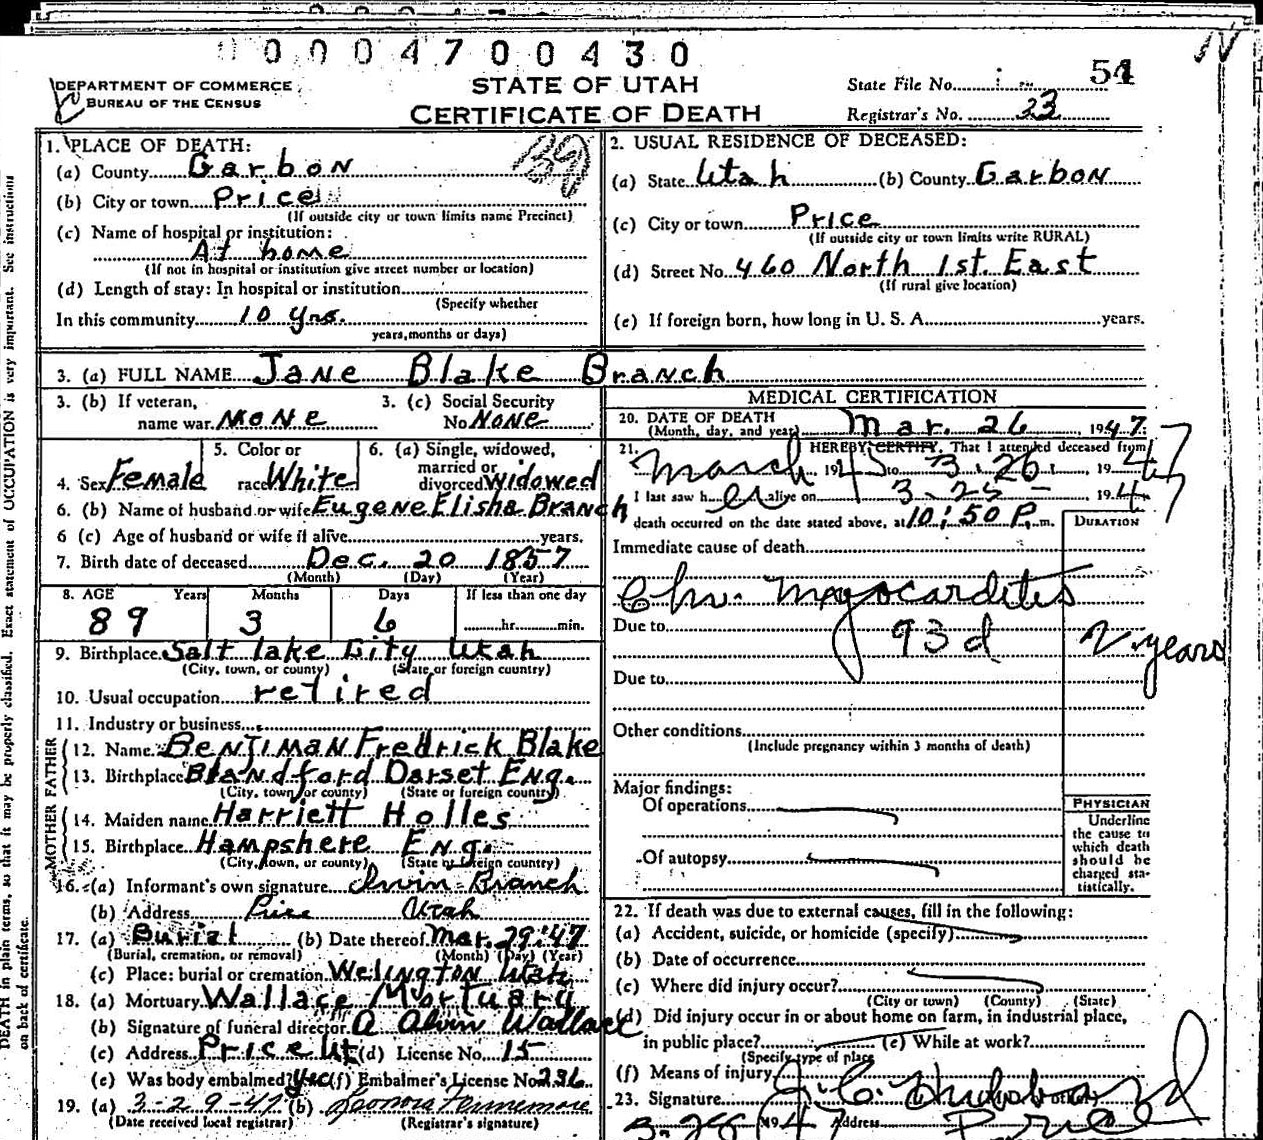 00004700430
54
DEPARTMENT OF COMMERCE
BUREAU OF THE CENSUS
STATE OF UTAH
CERTIFICATE OF DEATH
State File No.
Registrar's No. 33
1. PLACE OF DEATH:
(a) County Carbon
(b) City or town Price
(If outside city or town limits name Precinct)
(c) Name of hospital or institution:
At home
(If not in hospital or institution give street number or location)
(d) Length of stay: In hospital or institution
(Specify whether
In this community 10 yrs.
years, months or days)
2. USUAL RESIDENCE OF DECEASED:
(a) State Utah (b) County Carbon
(c) City or town Price
(If outside city or town limits write RURAL)
(d) Street No. 460 North 1st. East
(If rural give location)
(e) If foreign born, how long in U. S. A. years.
3. (a) FULL NAME Jane Blake Branch
3. (b) If veteran, name war NONE
3. (c) Social Security No. NONE
4. Sex Female
5. Color or race White
6. (a) Single, widowed, married or divorced Widowed
6. (b) Name of husband or wife Eugene Elisha Branch
6 (c) Age of husband or wife if alive years.
7. Birth date of deceased Dec. 20 1857
(Month) (Day) (Year)
8. AGE Years Months Days If less than one day
89 3 6 hr. min.
9. Birthplace Salt lake City Utah
(City, town, or county) (State or foreign country)
10. Usual occupation retired
11. Industry or business
FATHER
12. Name Benjiman Fredrick Blake
13. Birthplace Blandford Darset Eng.
(City, town, or county) (State or foreign country)
MOTHER
14. Maiden name Harriett Holles
15. Birthplace Hampshere Eng.
(City, town, or county) (State or foreign country)
16. (a) Informant's own signature Irvin Branch
(b) Address Price Utah
17. (a) Burial (b) Date thereof Mar. 29. '47
(Burial, cremation, or removal) (Month) (Day) (Year)
(c) Place: burial or cremation Welington Utah
18. (a) Mortuary Wallace Mortuary
(b) Signature of funeral director A Alvin Wallace
(c) Address Price Ut (d) License No. 15
(e) Was body embalmed? yes (f) Embalmer's License No. 236
19. (a) 3-29-47 (b) Leonora Fennemore
(Date received local registrar) (Registrar's signature)
MEDICAL CERTIFICATION
20. DATE OF DEATH
(Month, day, and year) Mar. 26 1947.
21. I HEREBY CERTIFY, That I attended deceased from
March 1945 to 3. 26. 1947
I last saw her alive on 3-25- 1947
death occurred on the date stated above, at 10:50 P. m.
DURATION
Immediate cause of death
Chr. Myocarditis
Due to 93d 2 years
Due to
Other conditions
(Include pregnancy within 3 months of death)
Major findings:
Of operations
Of autopsy
PHYSICIAN
Underline
the cause to
which death
should be
charged sta-
tistically.
22. If death was due to external causes, fill in the following:
(a) Accident, suicide, or homicide (specify)
(b) Date of occurrence
(c) Where did injury occur?
(City or town) (County) (State)
(d) Did injury occur in or about home on farm, in industrial place,
in public place? (e) While at work?
(Specify type of place)
(f) Means of injury
23. Signature J. C. Hubbard
Address Price
DEATH in plain terms, so that it may be properly classified. Exact statement of OCCUPATION is very important. See instructions
on back of certificate.